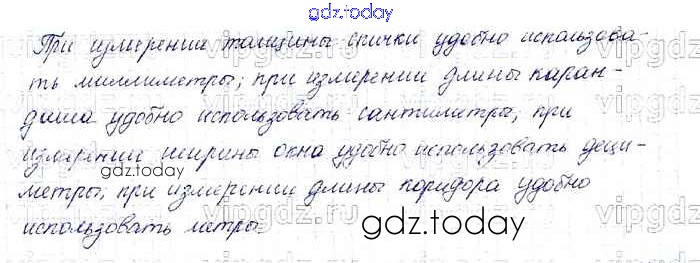 gdz.today
При измерении толщины спички удобно использова-
ть миллиметры; при измерении длины каран-
даша удобно использовать сантиметры; при
измерении ширины окна удобно использовать деци-
gdz.today
метры; при измерении длины коридора удобно
использовать метры.
gdz.today